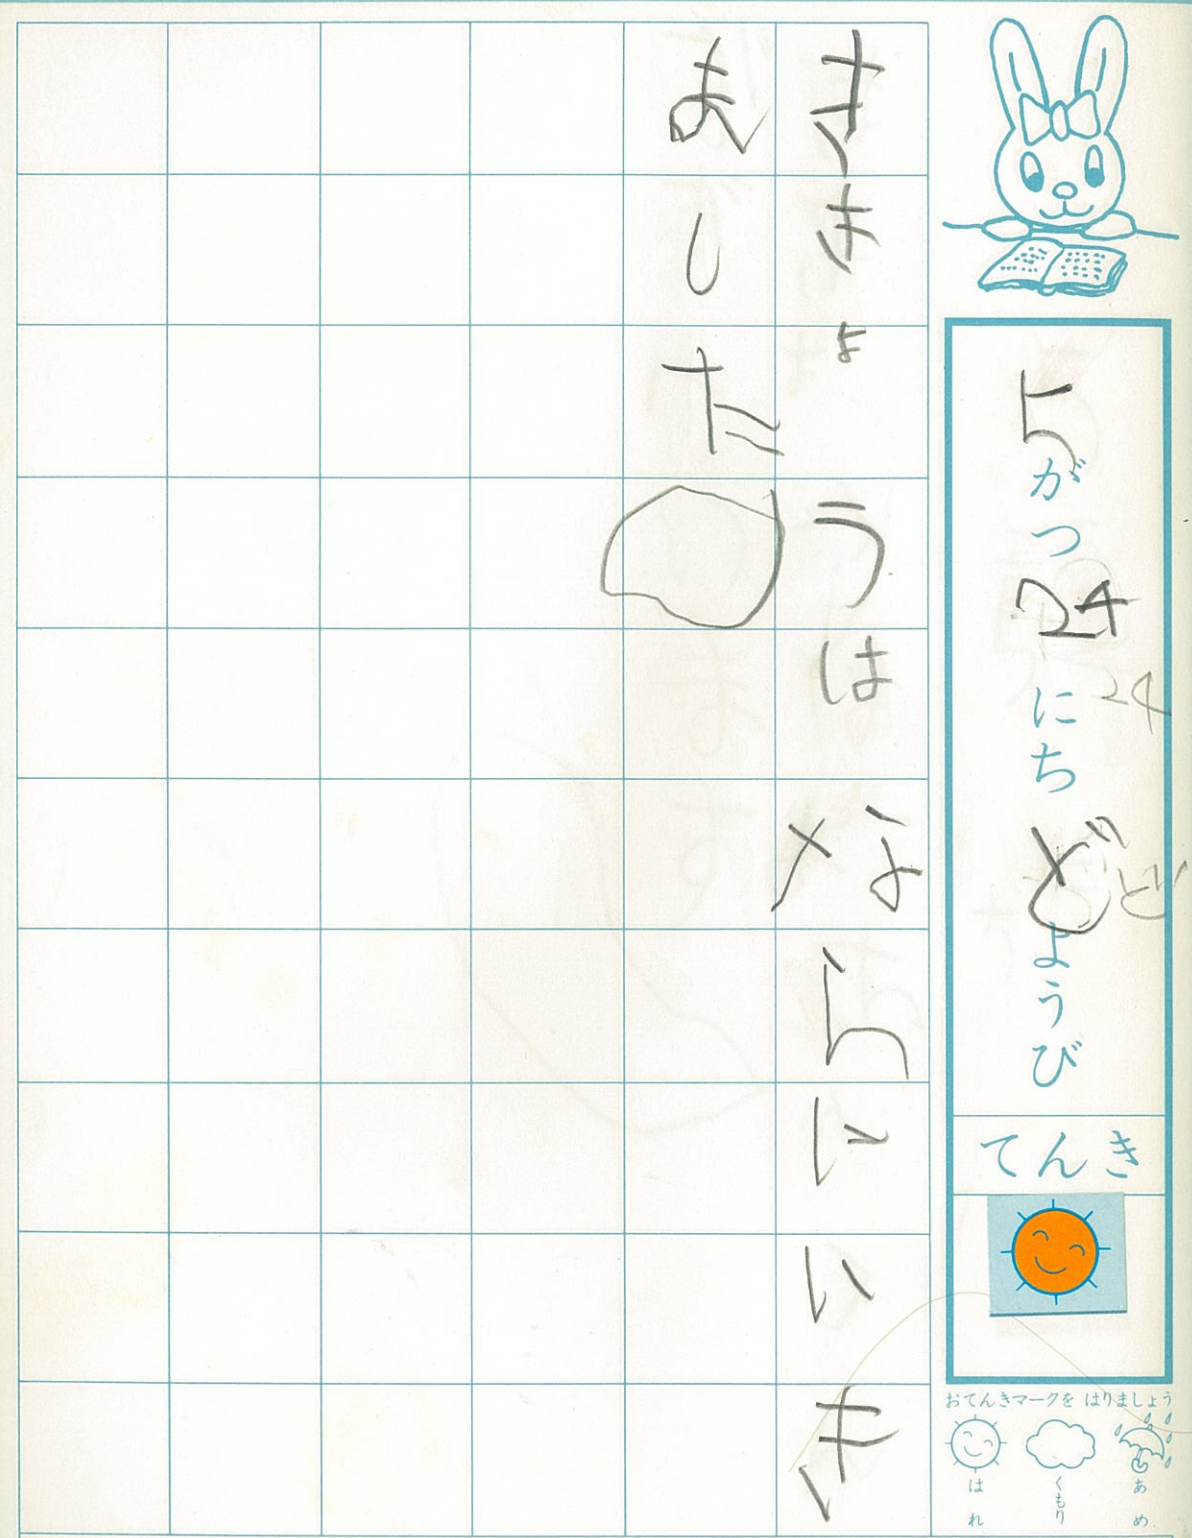 5がつ24にちどようび
24
ど
てんき
おてんきマークをはりましょう
はれ
くもり
あめ
ききょうはならにいき
ました